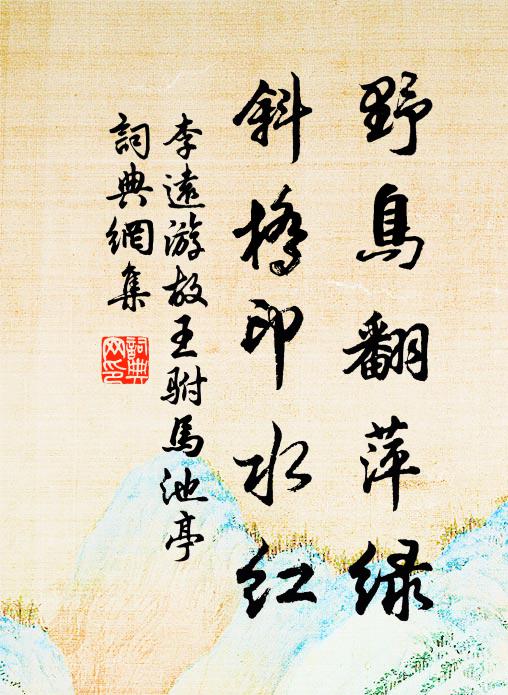 野鳥翻萍緑
斜橋印水紅
李遠游故王駙馬池亭
詞典網集
詞典網印